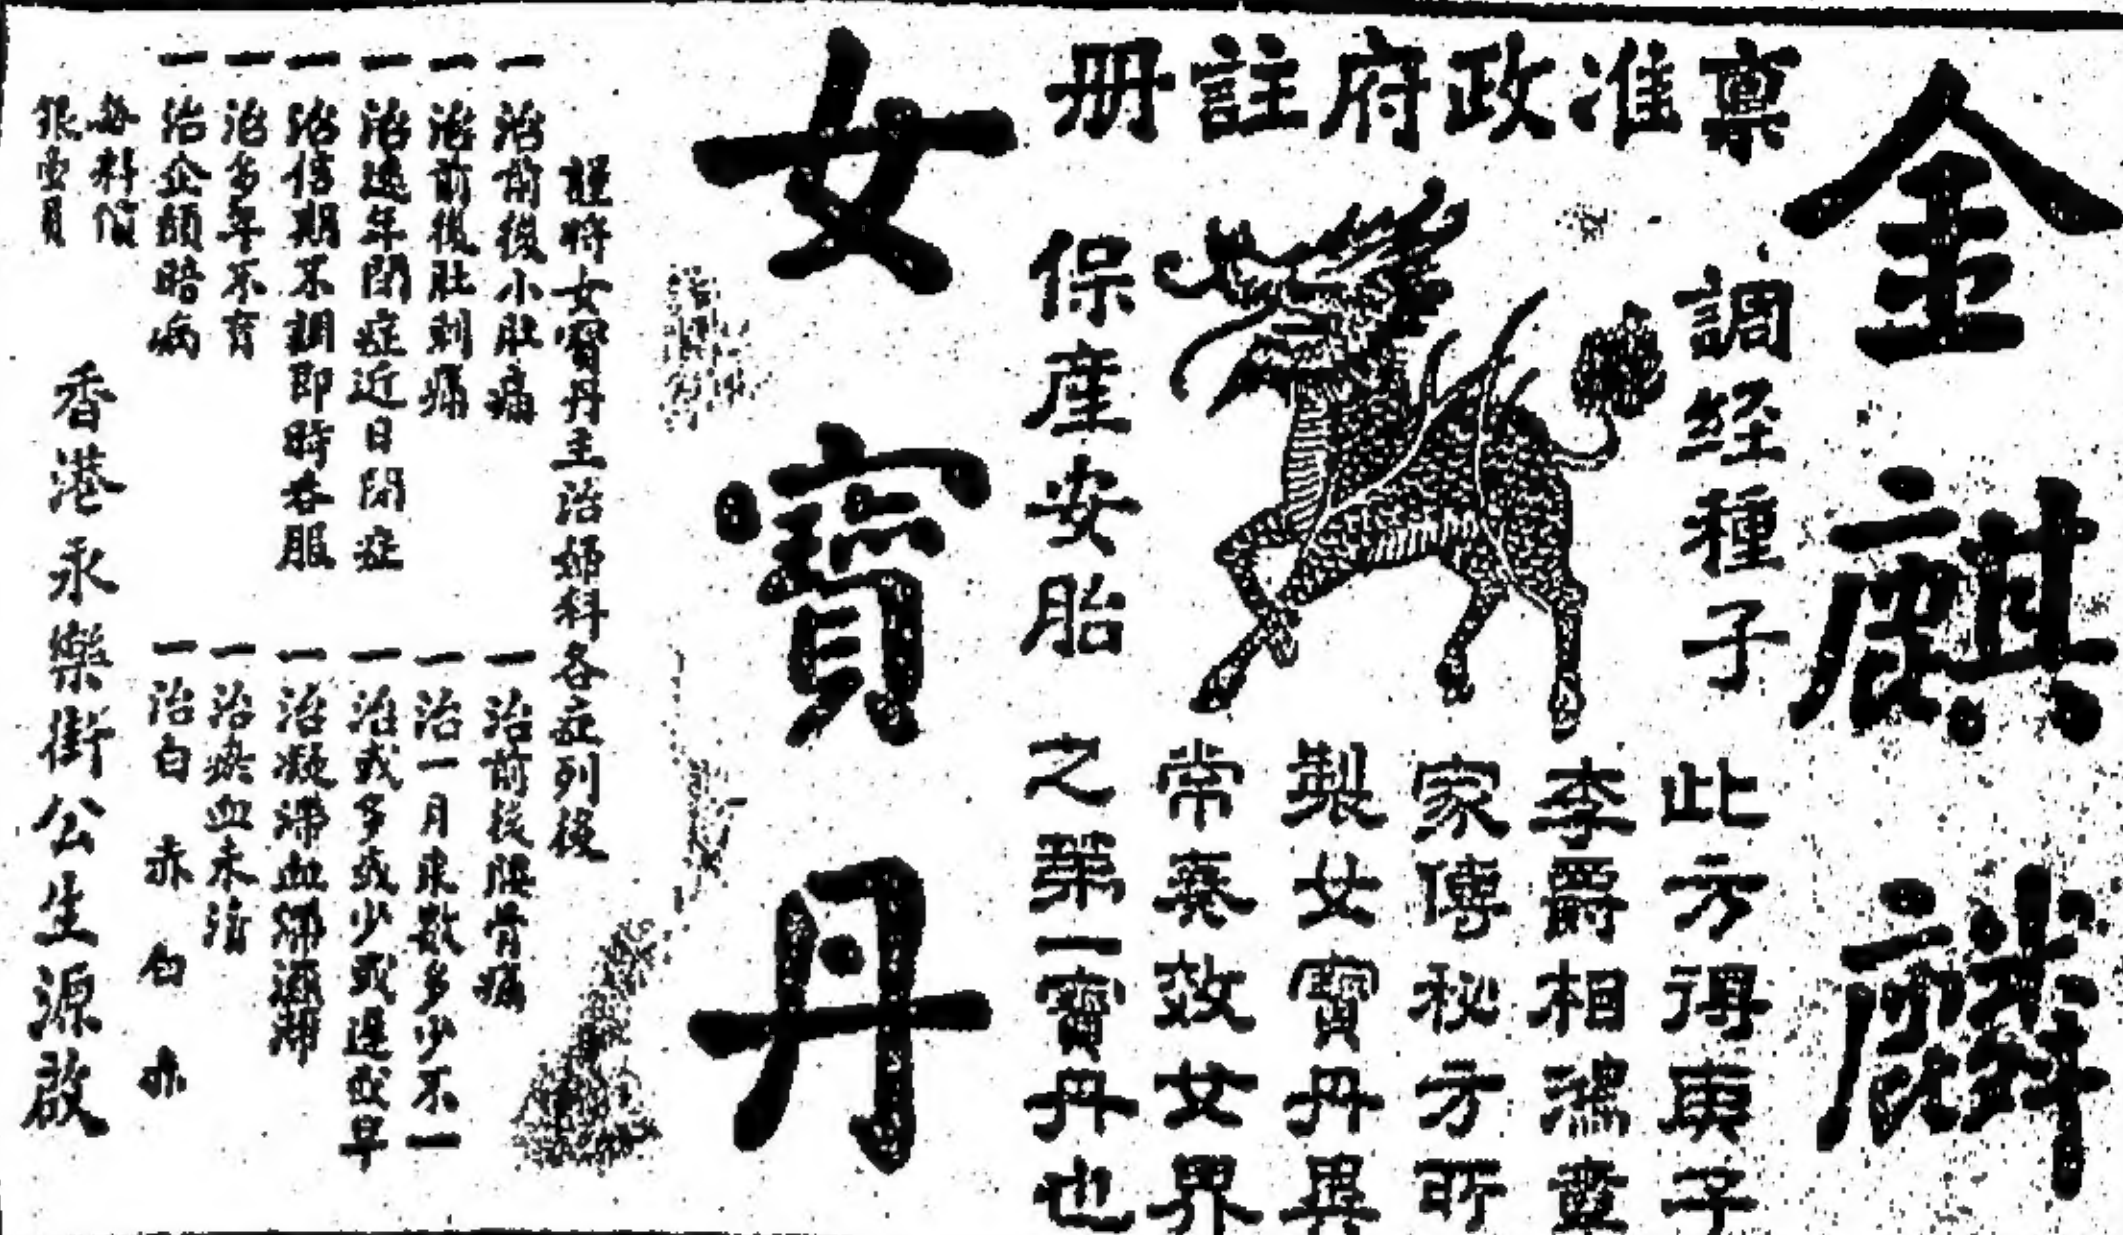 金麒麟
稟准政府註冊
調經種子
保産安胎
此方得庚子
李爵相鴻
家傳秘方所
製女寶丹異
常奏效女界
之第一寶丹也
女寶丹
謹將女寶丹主治婦科各症列後
一治前後小肚痛
一治前後肚刺痛
一治遠年閉症近日閉症
一治信期不調即時吞服
一治多年不育
一治企頭暗病
一治前後腰骨痛
一治一月來數多少不一
一治或多或少或遲或早
一治凝滯血滯
一治瘀血未清
一治白赤白赤
每料價
銀壹員
香港永樂街公生源啟